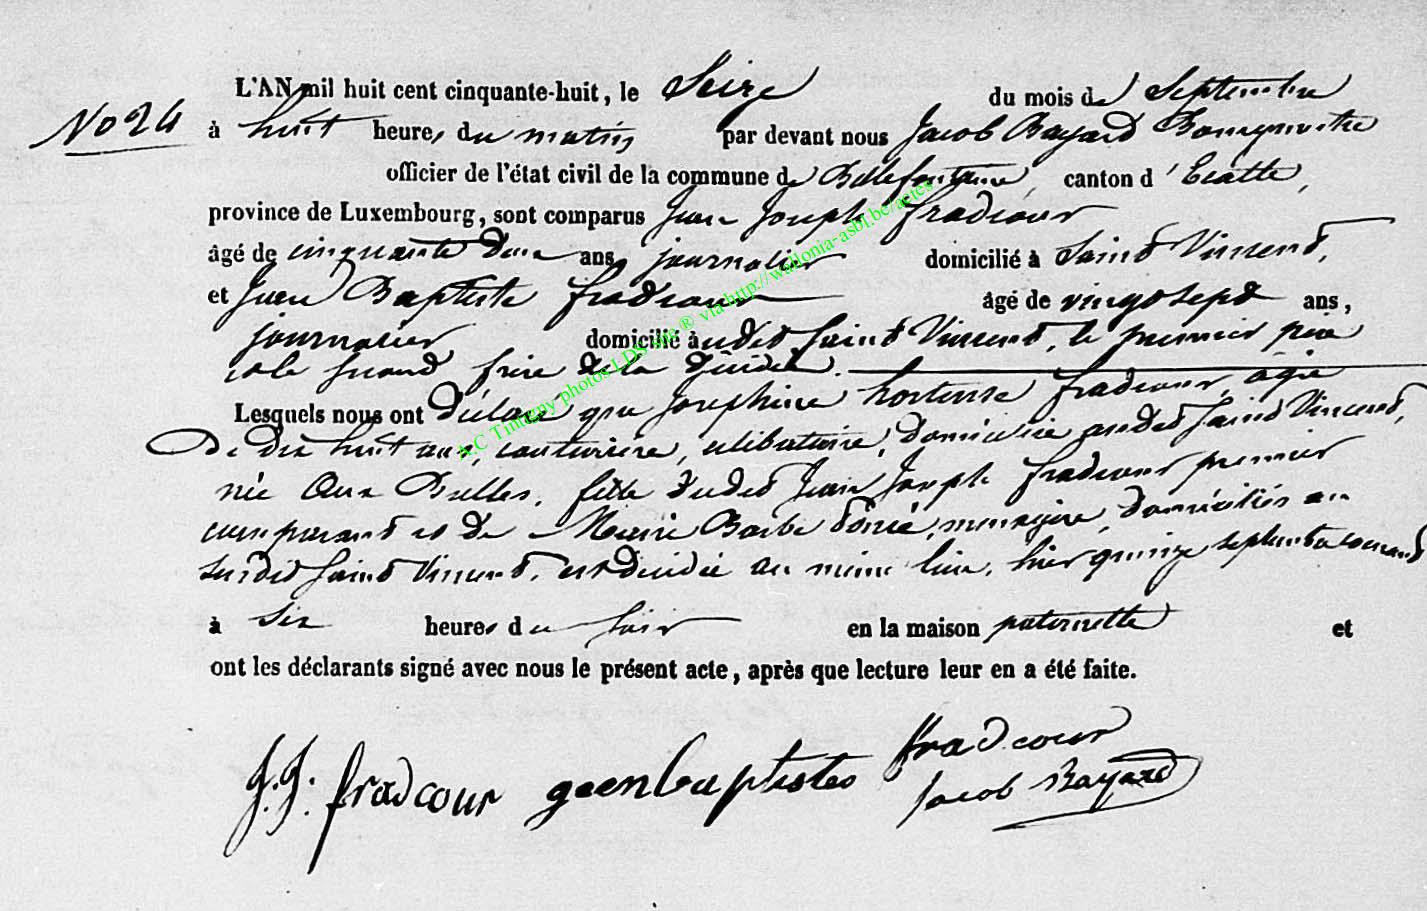 L'AN mil huit cent cinquante-huit, le Seize du mois de Septembre
No 24 à huit heures du matin par devant nous Jacob Bayard Bourgmestre
officier de l'état civil de la commune de Bellefontaine canton d'Etalle,
province de Luxembourg, sont comparus Jean Joseph fradcour
âgé de cinquante deux ans, journalier domicilié à Saint Vincent,
et Jean Baptiste fradcour âgé de vingt sept ans,
journalier domicilié audit Saint Vincent, le premier père
et le second frère de la
Lesquels nous ont déclaré que Joséphine hortense fradcour, agée
de dix huit ans, couturière, célibataire, domiciliée audit Saint Vincent,
née Aux Bulles, fille dudit Jean Joseph fradcour premier
comparant et de Marie Barbe ménagère, domiciliés au
susdit Saint Vincent, est décédée au même lieu, hier quinze septembre courant
à Six heures du soir en la maison paternelle et
ont les déclarants signé avec nous le présent acte, après que lecture leur en a été faite.
J. J. fradcour geenbaptiste fradcour
Jacob Bayard
A.C Tintigny photos LDS via http://wallonia-asbl.be/actes